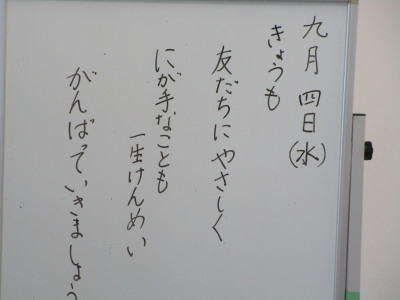 九月四日(水)
きょうも
友だちにやさしく
にが手なことも
一生けんめい
がんばっていきましょう